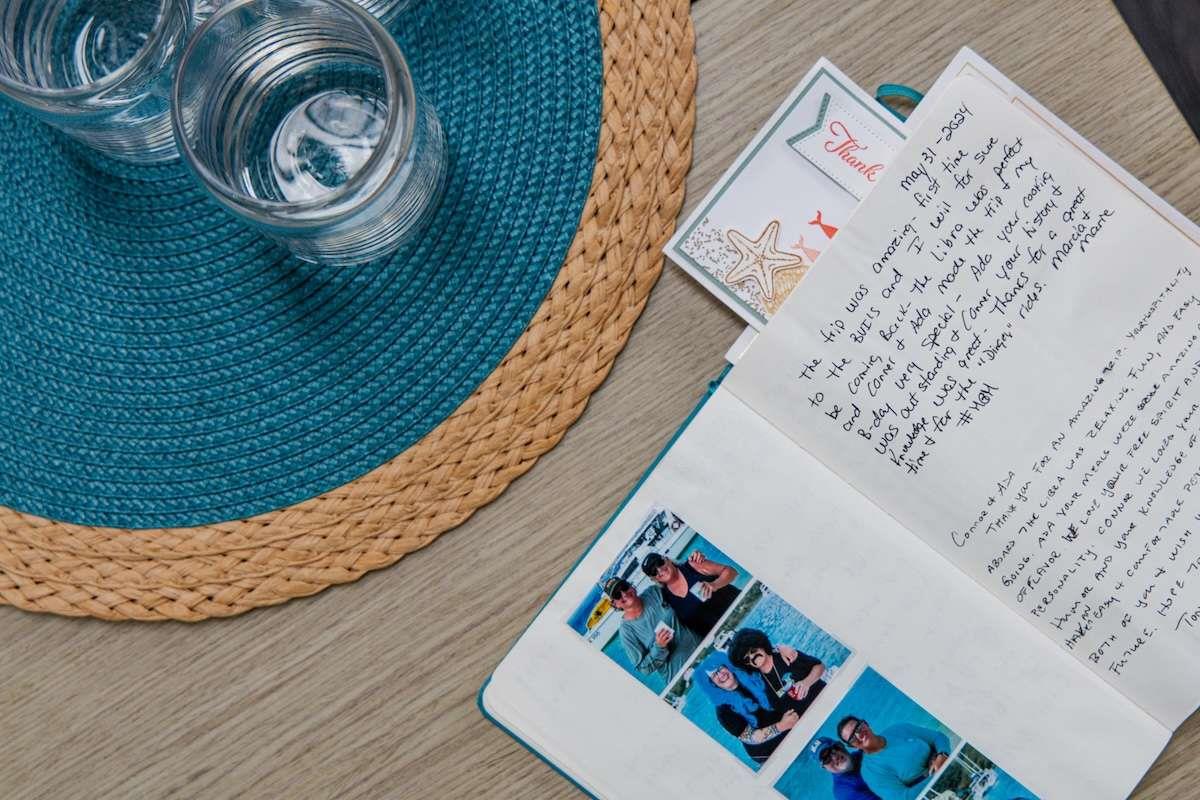 Thank
May 31-2024
The trip was amazing- first time
to the BVI'S and I will for sure
be coming Back- the Libra was perfect
and Conner & Ada made the trip & my
B-day very special- Ada your cooking
was outstanding & Conner your history &
Knowledge was great- Thanks for a great
time & for the "Dingey" rides. Marcia &
#MBM Marie
Connor & Ada
Thank you for an amazing trip. Your hospitality
aboard the Libra was relaxing, fun, and easy
going. Ada your meals were amazing
of flavor we love your free spirit and
personality Connor we loved your
humor and your knowledge of
have an easy & comfortable
both of you & wish
future. Hope to